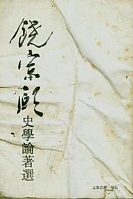 饒宗頤
史學論著選
上海古籍出版社